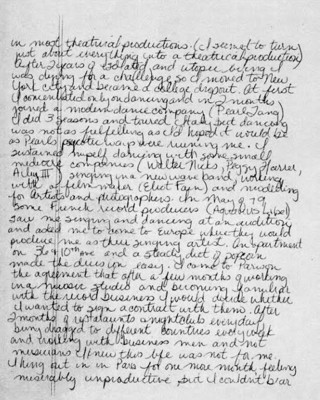 in most theatrical productions. (I seem to turn
just about everything into a theatrical production)
After 2 years of isolated and utopic being I
was dying for a challenge so I moved to New
York city and became a college dropout. At first
I concentrated on dancing and in 2 months
joined a modern dance company (Pearl Lang)
I did 3 seasons and toured Italy but dancing
was not as fulfilling as I'd hoped it would be
as Pearls ways were ruining me. I
sustained myself dancing with some small
midtown companies (Walter Nicks, Pegy Harrer,
Ailey III) singing in a new wave band, working
with a film maker (Eliot Fain) and modelling
for artists and photographers. In May of 79
Some French record producers
saw me singing and dancing at an audition
and asked me to come to Europe where they would
produce me as their singing artist. An apartment
on 30th and 10th ave and a steady diet of popcorn
made the decision easy. I came to Paris on
the agreement that after a few months of working
in a music studio and becoming familiar
with the record business I would decide whether
I wanted to sign a contract with them. After
2 months of restaurants and nightclubs everyday
being dragged to different countries every week
and working with business men and not
musicians I knew this life was not for me.
I hung out in in Paris for one more month feeling
miserably unproductive but I couldn't bear